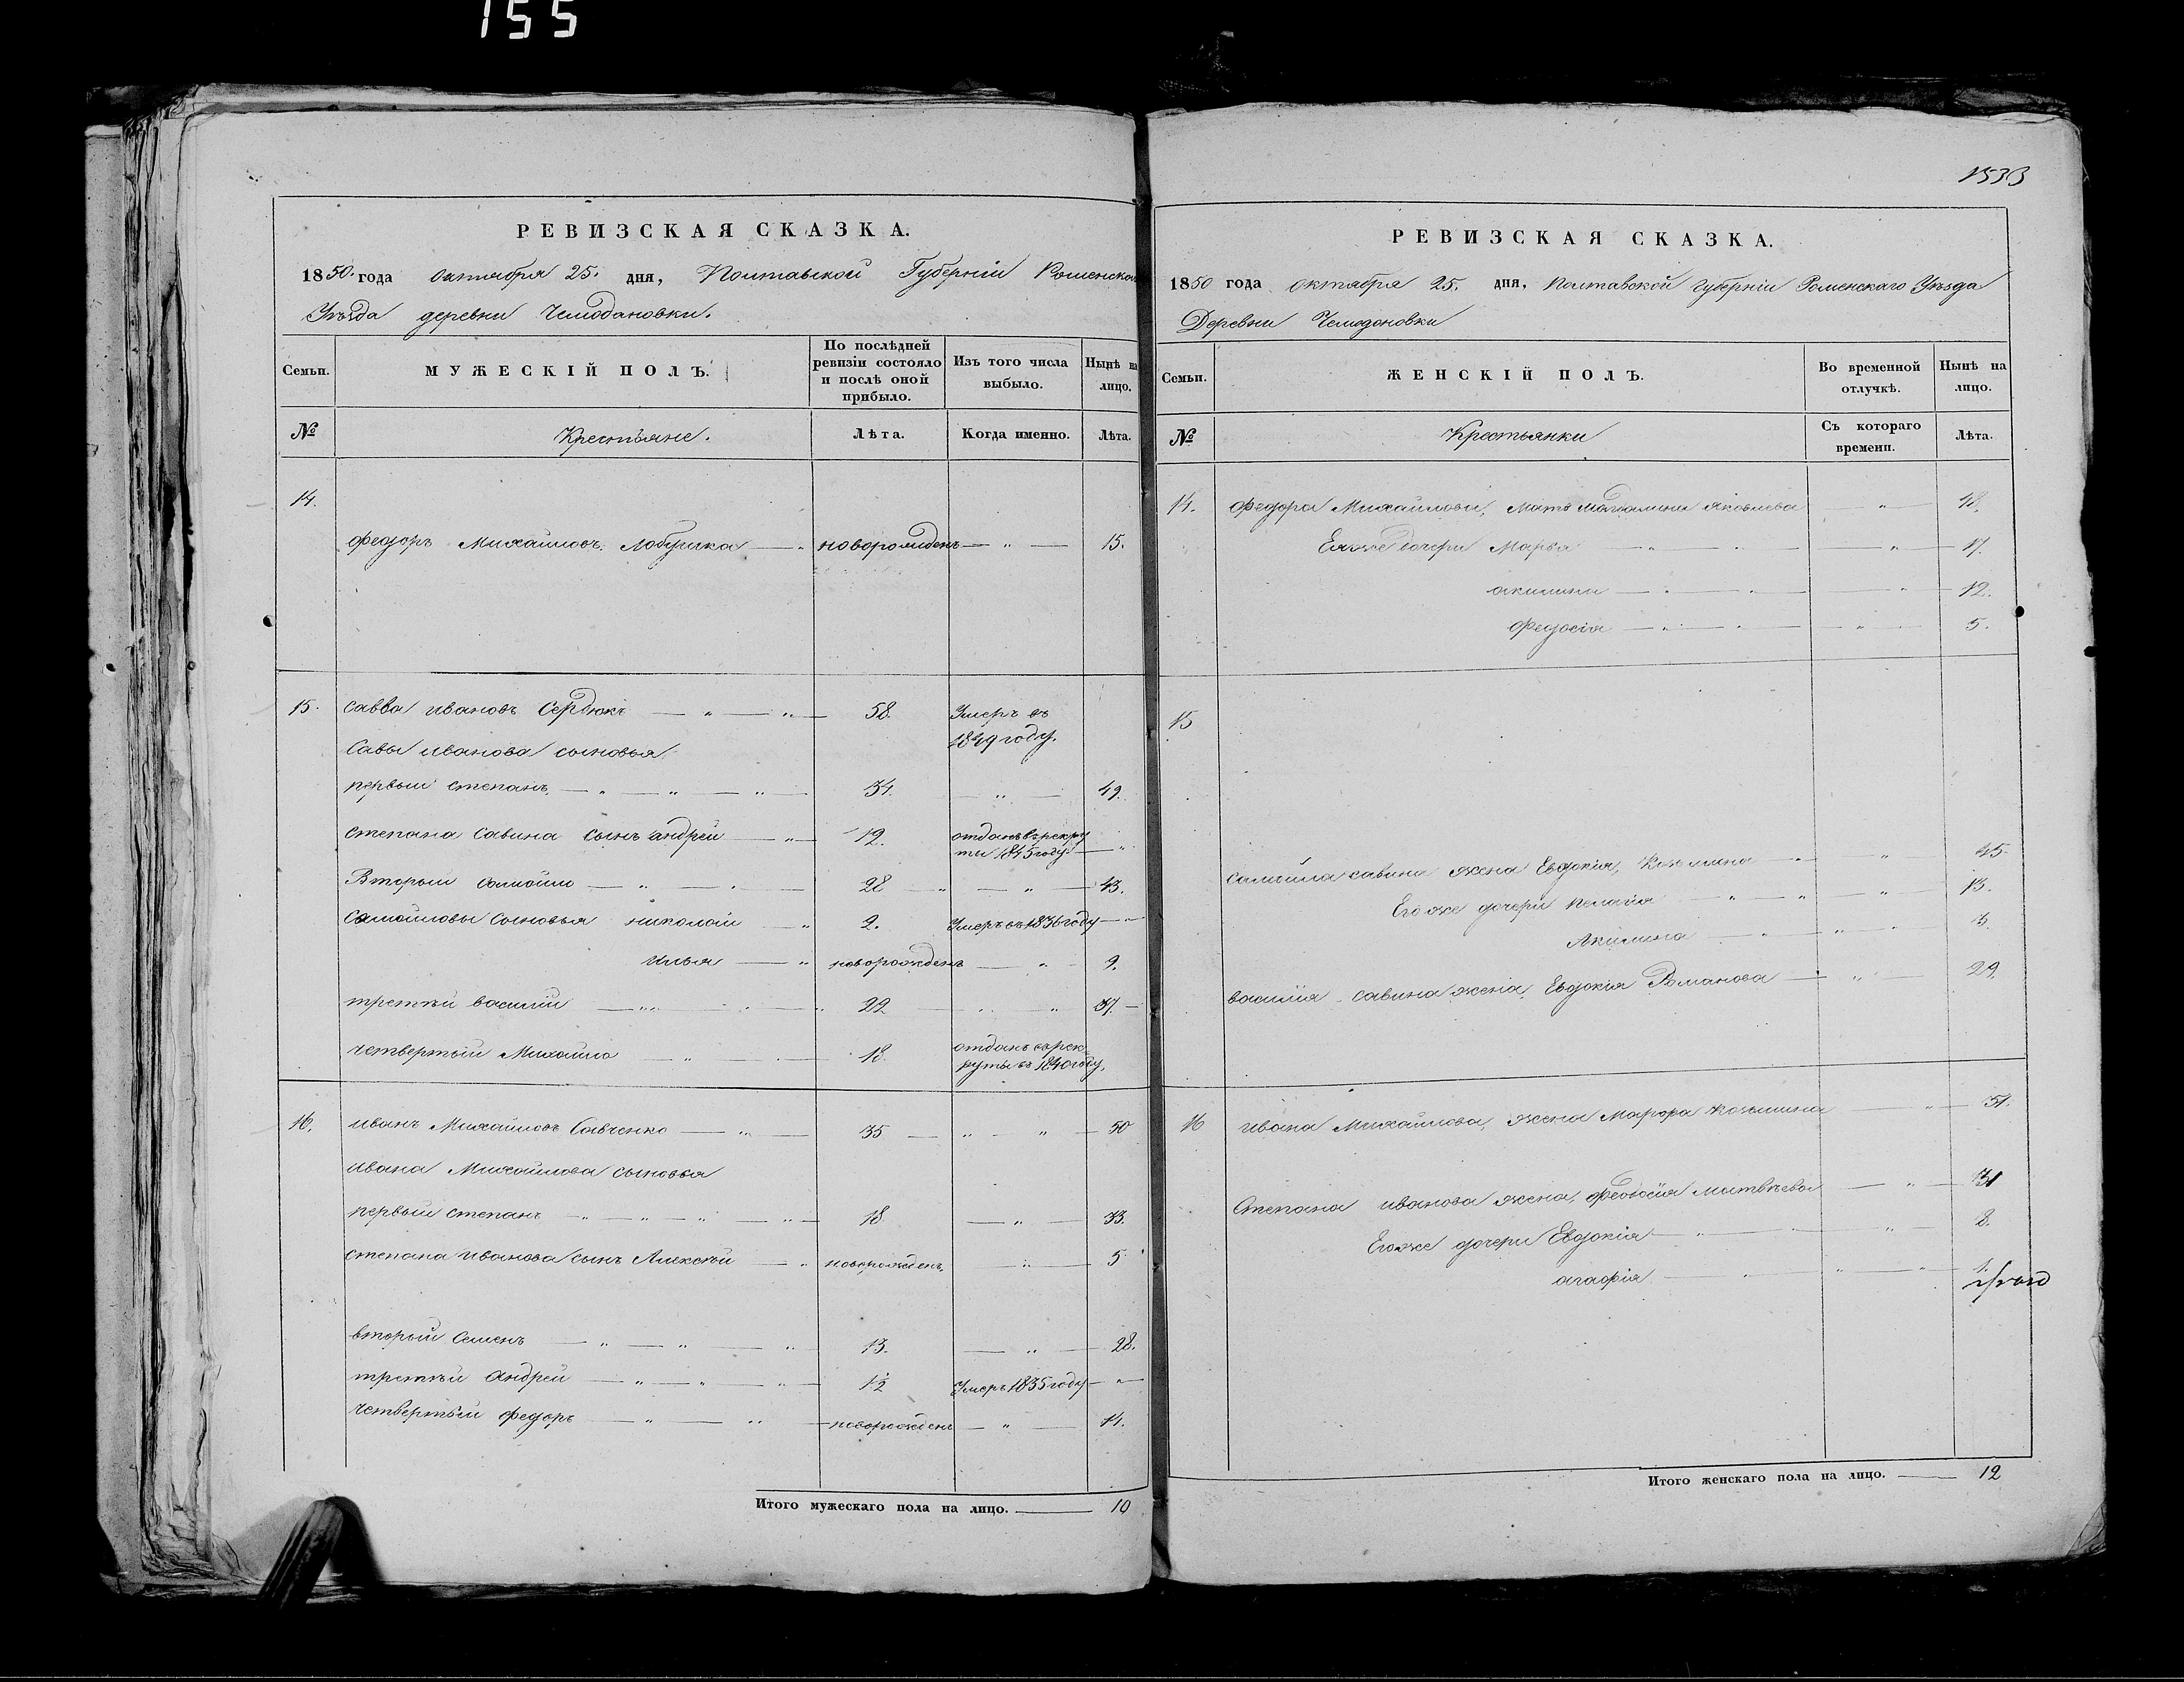 155
РЕВИЗСКАЯ СКАЗКА.
1850. года октября 25. дня, Полтавской Губерніи Роменскаго
Уѣзда деревни Чемодановки.
Семьи.
МУЖЕСКІЙ ПОЛЪ.
По послѣдней ревизіи состояло и послѣ оной прибыло.
Изъ того числа выбыло.
Нынѣ на лицо.
№
Крестьяне.
Лѣта.
Когда именно.
Лѣта.
14.
федоръ Михайловъ Лобушка — " новорожденъ — " — 15.
15. савва ивановъ Сердюкъ — " — " — 58. Умеръ въ
1849 году.
Савы иванова сыновья
первый степанъ — " — " — " — 34. — " — 49.
степана савина сынъ андрей — " — 12. отданъ въ рекру
ты 1845 году — "
Вторый самойло — " — " — 28 — " — 43.
самойловы сыновья николай — " 2. Умеръ въ 1836 году — "
илья — " новорожденъ — " — 9.
третій василій — " — " 22 — " — 37. —
четвертый Михайло — " — 18. отданъ въ рек-
руты въ 1840 году.
16. иванъ Михайловъ Савченко — " — 35 — " — " — 50
ивана Михайлова сыновья
первый степанъ — " — " — " — " — 18. — " — 33.
степана иванова сынъ Алексѣй — " новорожденъ. — " — 5
вторый семенъ — " — " — " 13. — " — 28.
третій андрей — " — " — " — 1½ Умеръ 1835 году — "
четвертый федоръ — " — " — новорожденъ — " — 14.
Итого мужескаго пола на лицо. — 10
153
РЕВИЗСКАЯ СКАЗКА.
1850 года октября 25. дня, Полтавской губерніи Роменскаго Уѣзда
Деревни Чемодоновки
Семьи.
ЖЕНСКІЙ ПОЛЪ.
Во временной отлучкѣ.
Нынѣ на лицо.
№
Крестьянки
Съ котораго времени.
Лѣта.
14. федора Михайлова, мать Яковлева — " — 48.
Еяже дочери Марья — " — " — " — 17.
акилина — " — " — " — 12.
федосія — " — " — " — 5.
15
самойла савина жена Евдокія, Козьмина — " — " — 45.
Егоже дочери пелагія — " — " — " — 13.
Акилина — " — " — " 3.
василія савина жена, Евдокія Романова — " — 29.
16 ивана Михайлова, жена Марфа козьмина — " — 51.
Степана иванова жена, феодосія матвѣева — " — 31
Егоже дочери Евдокія — " — " — " — 8.
агафія — " — " — " — 1.
Итого женскаго пола на лицо. — 12